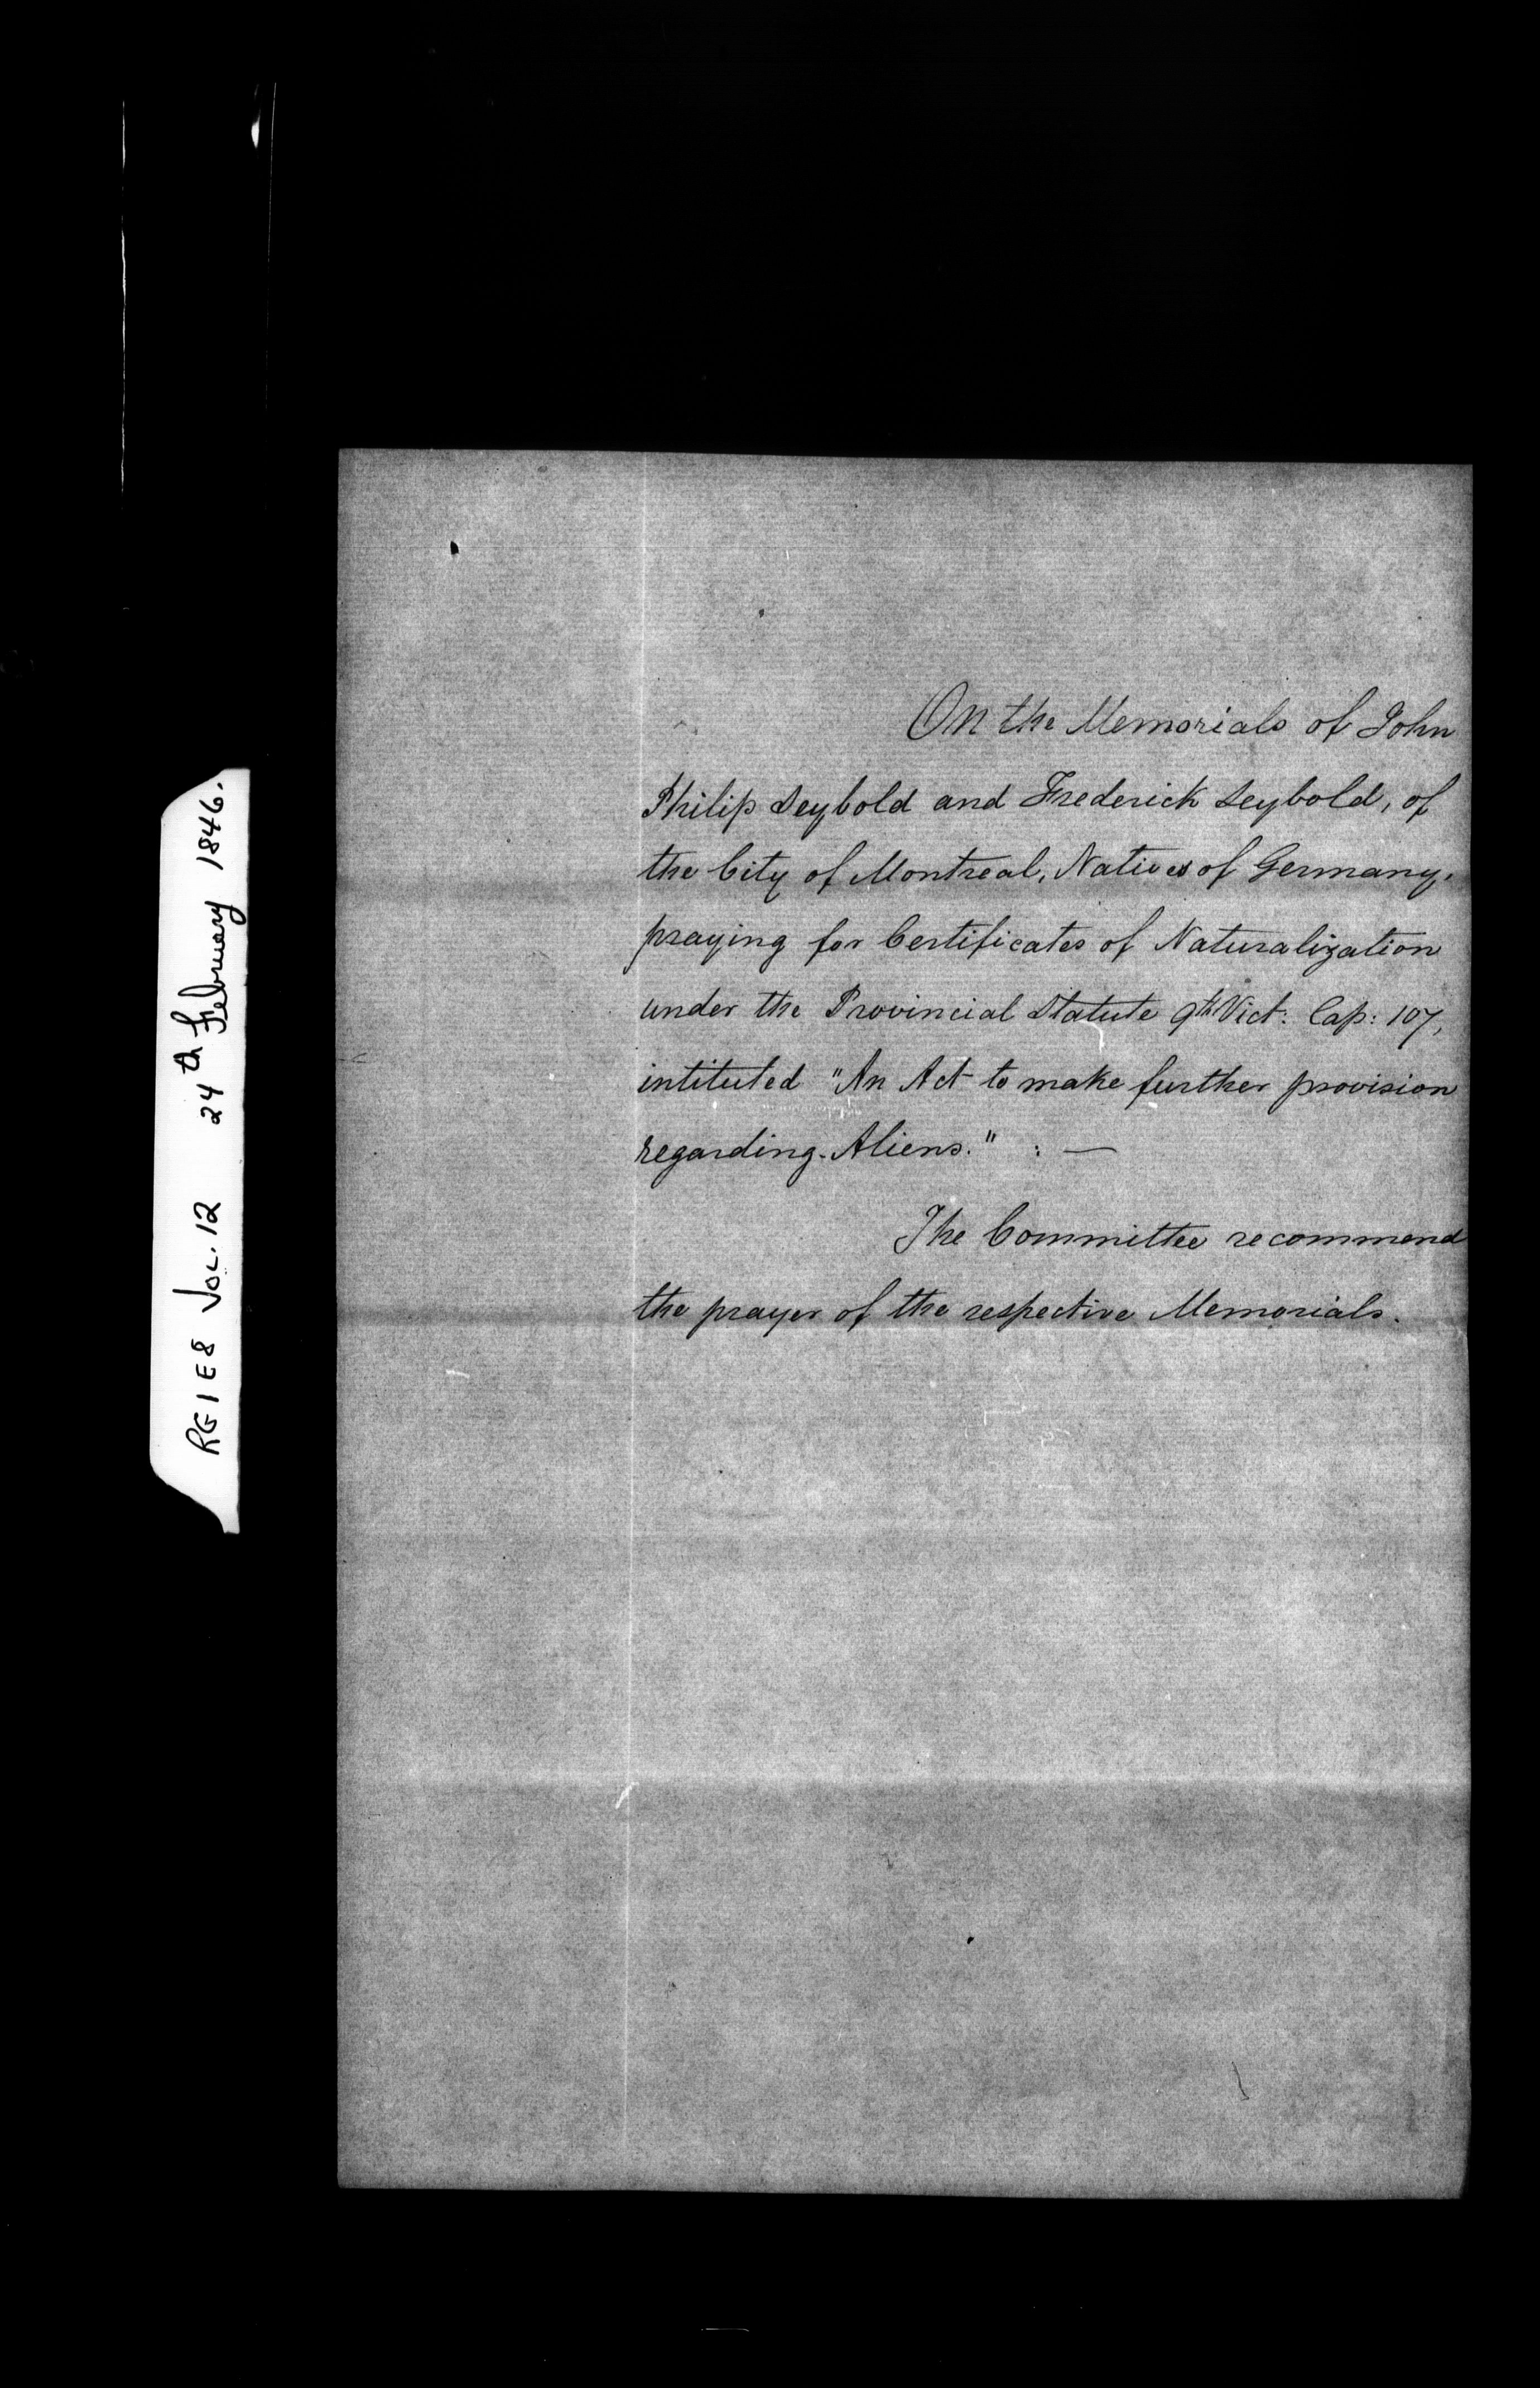 RG 1 E8 VOL. 12 24th February 1846.
On the Memorials of John
Philip Seybold and Frederick Seybold, of
the City of Montreal, Natives of Germany,
praying for Certificates of Naturalization
under the Provincial Statute 9th Vict: Cap: 107,
intituted "An Act to make further provision
regarding Aliens." : —
The Committee recommend
the prayer of the respective Memorials.